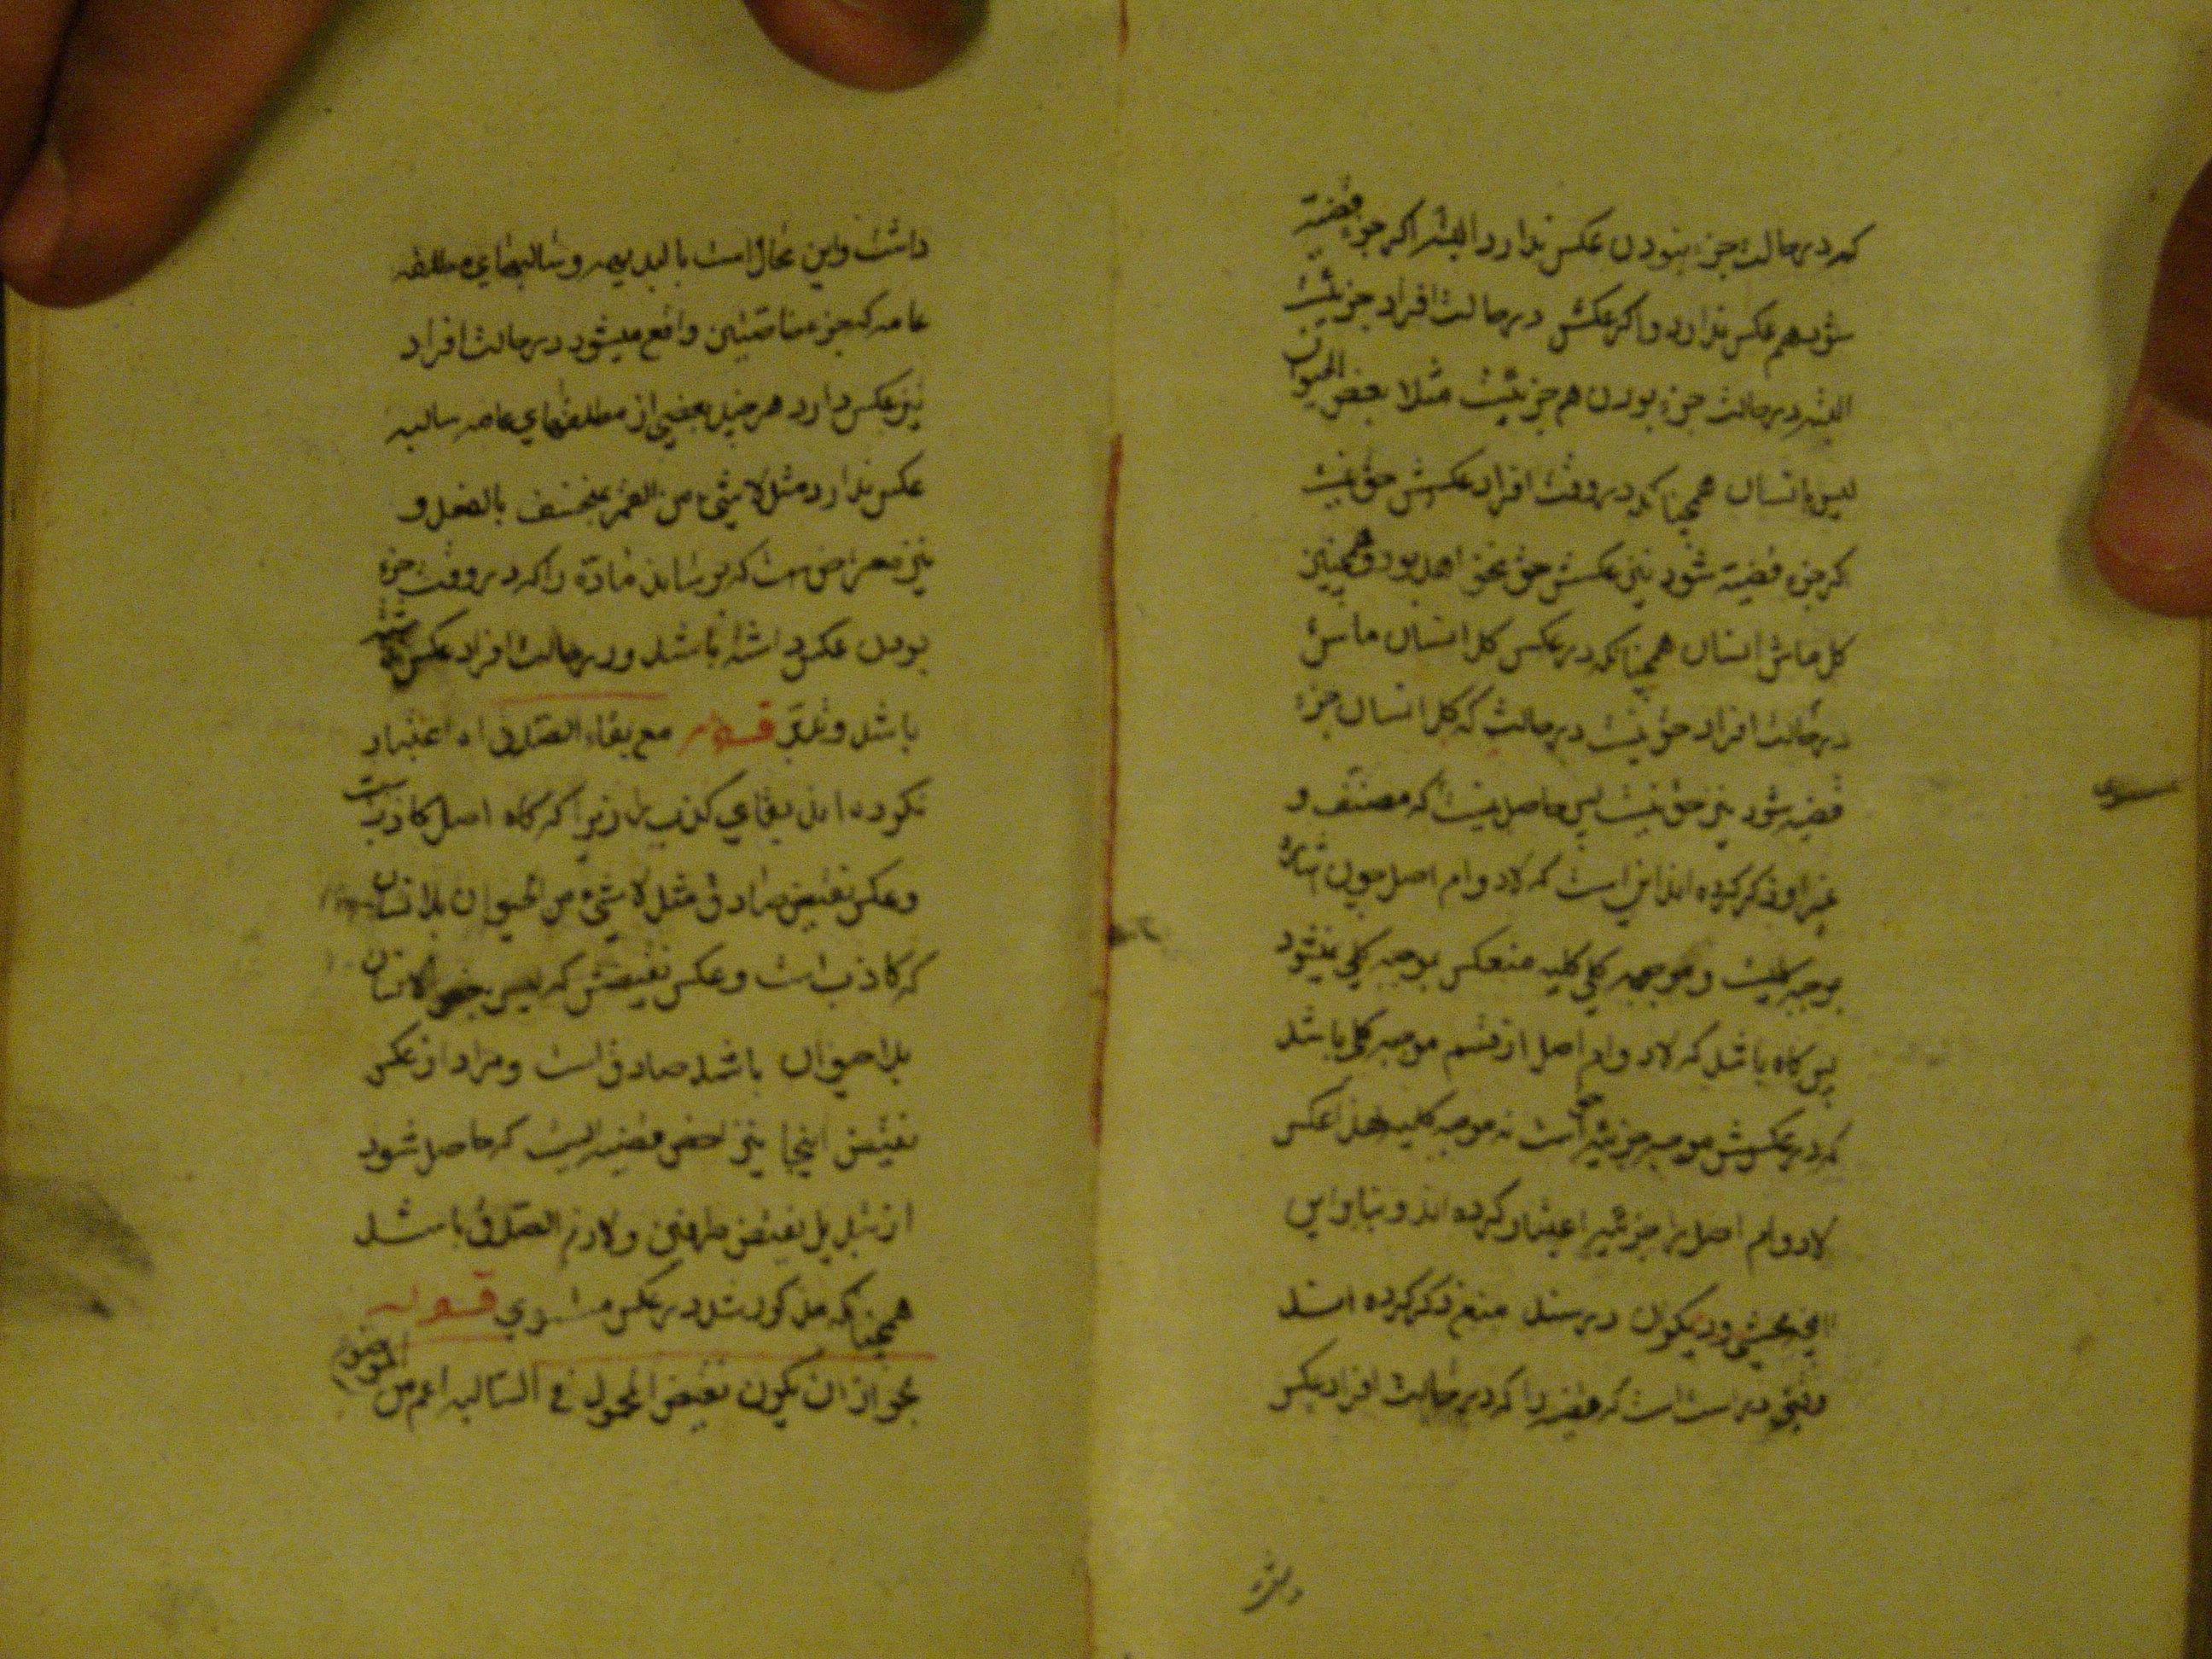 که در حالت جزء نبودن عکس ندارد البته اگر جزء قضیة
شود هم عکس ندارد و اگر عکسش در حالت افراد جزئیست
البته در حالت جزء بودن هم جزئیست مثلا بعض الحیوان
لیس بانسان همچنانکه در وقت افراد عکسش حق نیست
که جزء قضیة شود نیز عکسش حق نخواهد بود و همچنین
کل ماش انسان همچنانکه در عکس کل انسان ماش
در حالت افراد حق نیست در حالت که کل انسان جزء
قضیه شود نیز حق نیست پس حاصل نیست که مصنّف و
غیر او ذکر کرده اند این است که لادوام اصل چون اشاره
بموجبه کلیست و موجبه کلی کلیه منعکس بموجبه کلی نمیشود
پس گاه باشد که لادوام اصل از قسم موجبه کلی باشد
که در عکسش موجبه جزئیه است نه موجبه کلیه لهذا عکس
لادوام اصل را جزئیه اعتبار کرده اند و بنابراین
محشی و دیگران در سند منع ذکر کرده اند
وقتی در است است که قضیه را که در حالت افراد عکس
داشت و این محال است بالبدیهه و سالبهای مطلقه
عامه که جزء خاصتین واقع میشود در حالت افراد
نیز عکس دارد هر چند بعضی از مطلقهای عامه سالبه
عکس ندارد مثل لا شیء من القمر بمنخسف بالفعل و
نیز معراض است که برساند مادّه را که در وقت جزء
بودن عکس داشته باشد و در حالت افراد عکس
باشد و تدبّر قوله مع بقاء الصّدق اه اعتبار
نکرده اند بقای کذب را زیرا که گاه اصل کاذبست
و عکس نقیض صادق مثل لا شیء من الحیوان بلا انسان
که کاذب است و عکس نقیضش که لیس بعض الانسان
بلا حیوان باشد صادق است و مراد از عکس
نقیض اینجا نیز اخص قضیه ایست که حاصل شود
از تبدیل نقیض طرفین و لازم الصّدق باشد
همچنانکه مذکور شد در عکس مستوی قوله
لجواز ان یکون نقیض المحمول فی السّالبه اعم من الموضوع